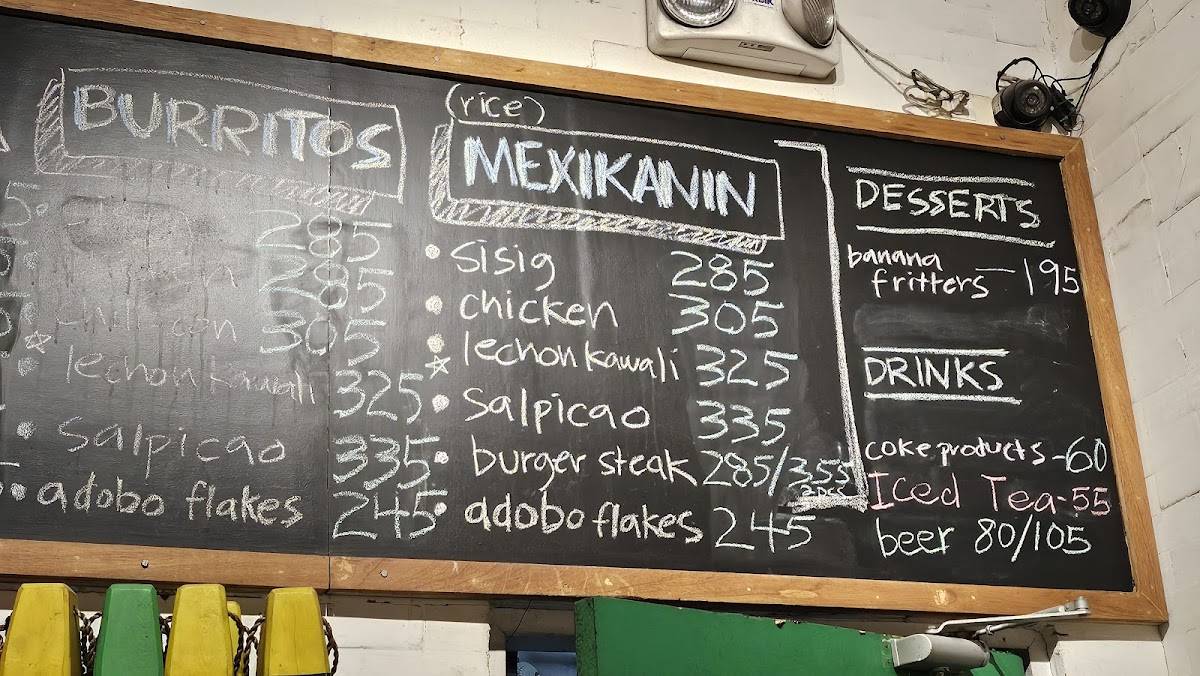 BURRITOS
285
285
305
lechon kawali 325
salpicao 335
adobo flakes 245
(rice)
MEXIKANIN
sisig 285
chicken 305
lechon kawali 325
salpicao 335
burger steak 285/355
2 pcs
adobo flakes 245
DESSERTS
banana
fritters — 195
DRINKS
coke products - 60
Iced Tea - 55
beer 80/105